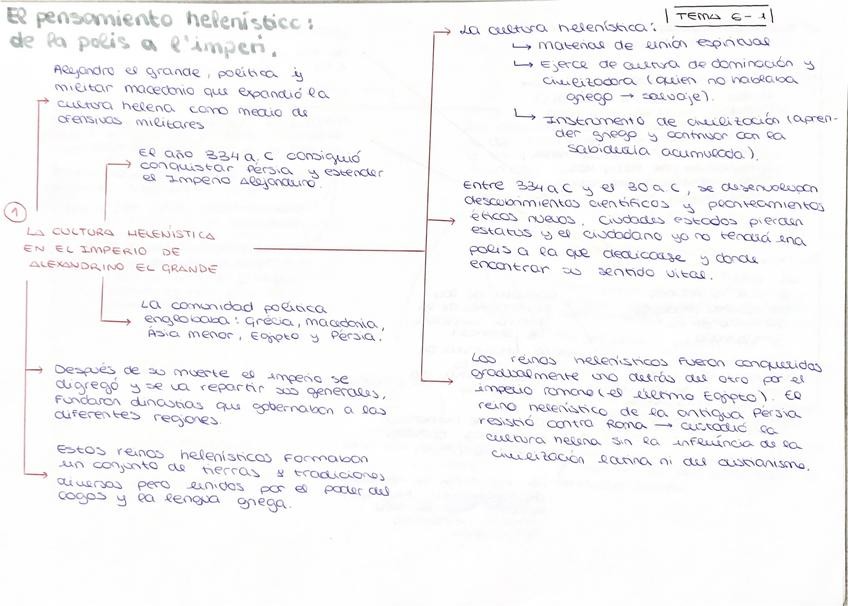 El pensamiento helenístico:
de la polis a l'imperi.
TEMA 6-1
Alejandro el grande, política y
militar macedonio que expandió la
cultura helena como medio de
ofensivas militares
El año 334 a.C consiguió
conquistar Pérsia y estender
el Imperio Alejandrino.
1
LA CULTURA HELENÍSTICA
EN EL IMPERIO DE
ALEXANDRINO EL GRANDE
La comunidad política
englobaba: Grécia, macedonia,
Ásia menor, Egipto y Pérsia.
Después de su muerte el imperio se
digregó y se va repartir sus generales,
Fundaron dinastias que gobernaban a las
diferentes regiones.
Estos reinos helenísticos formaban
un conjunto de tierras y tradiciones
diversas pero unidos por el poder del
Logos y la lengua griega.
La cultura helenística:
material de unión espiritual
Ejerce de cultura de dominación y
civilizadora (quien no hablaba
griego → salvaje).
Instrumento de civilización (apren-
der griego y continuar con la
sabiduría acumulada).
Entre 334 a C y el 30 a C, se desenvolupan
descobrimientos científicos y planteamientos
éticos nuevos. Ciudades estados pierden
estatus y el ciudadano ya no tendrá una
polis a la que dedicarse y donde
encontrar su sentido vital.
Los reinos helenísticos fueron conqueridos
gradualmente uno detrás del otro por el
imperio romano (el último Egipto). El
reino helenístico de la antigua Pérsia
resistió contra Roma → custodió la
cultura helena sin la influéncia de la
civilización latina ni del cristianismo.